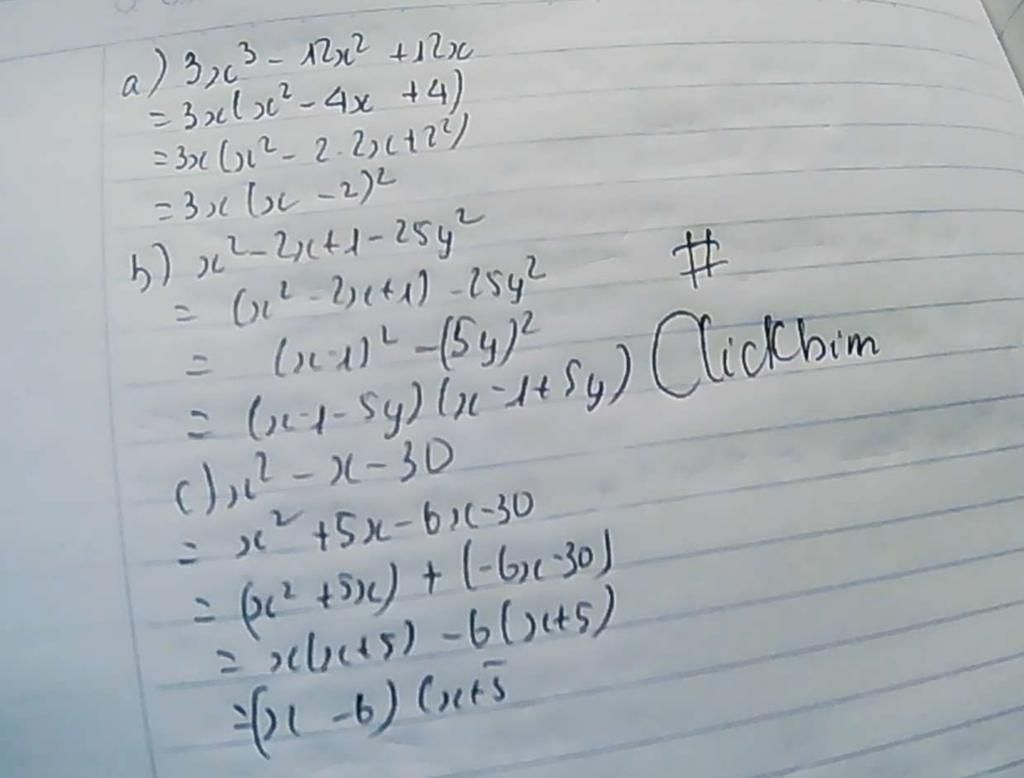 a) 3x³ - 12x² + 12x
= 3x(x² - 4x + 4)
= 3x(x² - 2.2x + 2²)
= 3x(x - 2)²
b) x² - 2x + 1 - 25y²
= (x² - 2x + 1) - 25y²
#
= (x - 1)² - (5y)²
= (x - 1 - 5y)(x - 1 + 5y)
Clickbim
c) x² - x - 30
= x² + 5x - 6x - 30
= (x² + 5x) + (-6x - 30)
= x(x + 5) - 6(x + 5)
= (x - 6)(x + 5